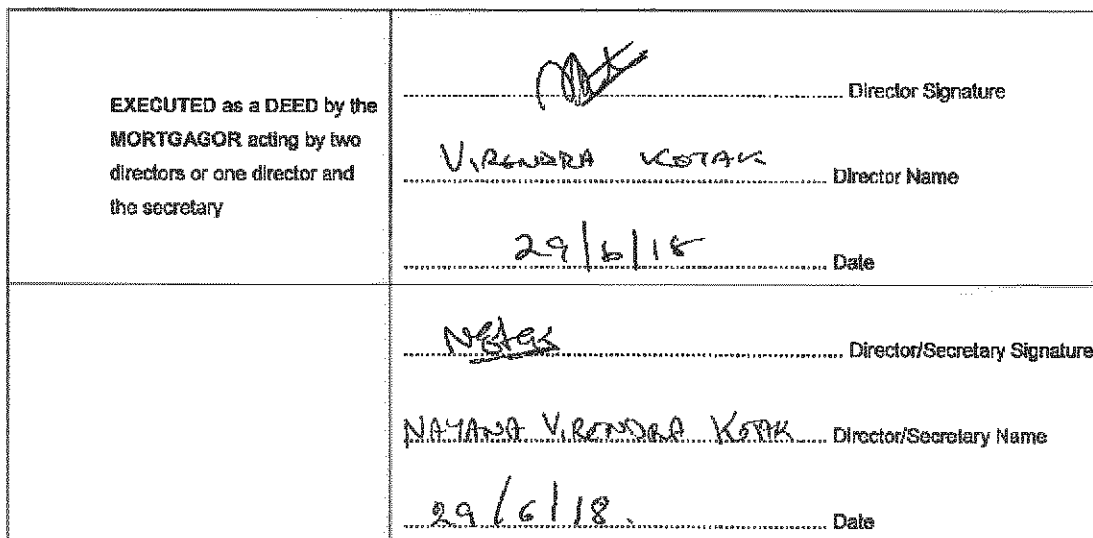 EXECUTED as a DEED by the
MORTGAGOR acting by two
directors or one director and
the secretary
Director Signature
VIRENDRA KOTAK Director Name
29/6/18 Date
Director/Secretary Signature
NAYANA VIRENDRA KOTAK Director/Secretary Name
29/6/18. Date